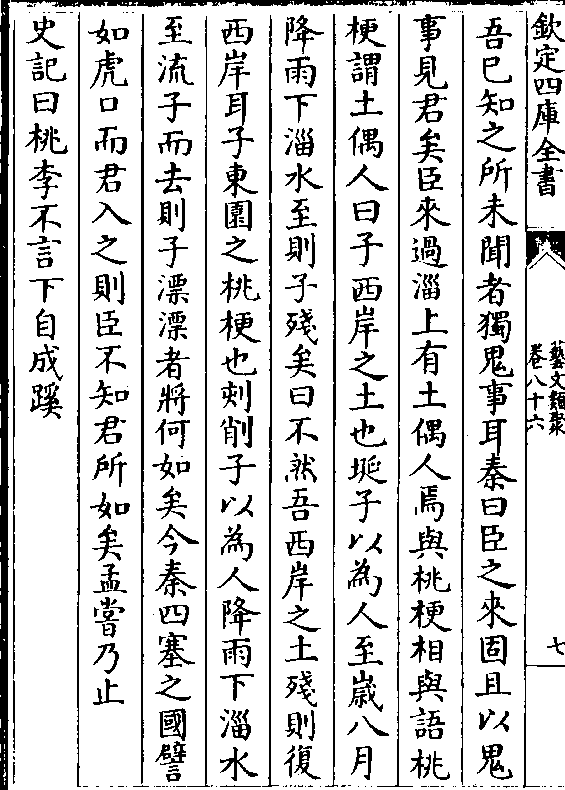 欽定四庫全書
藝文類聚
卷八十六
七
吾已知之所未聞者獨鬼事耳秦曰臣之來固且以鬼
事見君矣臣來過淄上有土偶人焉與桃梗相與語桃
梗謂土偶人曰子西岸之土也埏子以為人至歲八月
降雨下淄水至則子殘矣曰不然吾西岸之土殘則復
西岸耳子東園之桃梗也刺削子以為人降雨下淄水
至流子而去則子漂漂者將何如矣今秦四塞之國譬
如虎口而君入之則臣不知君所如矣孟嘗乃止
史記曰桃李不言下自成蹊